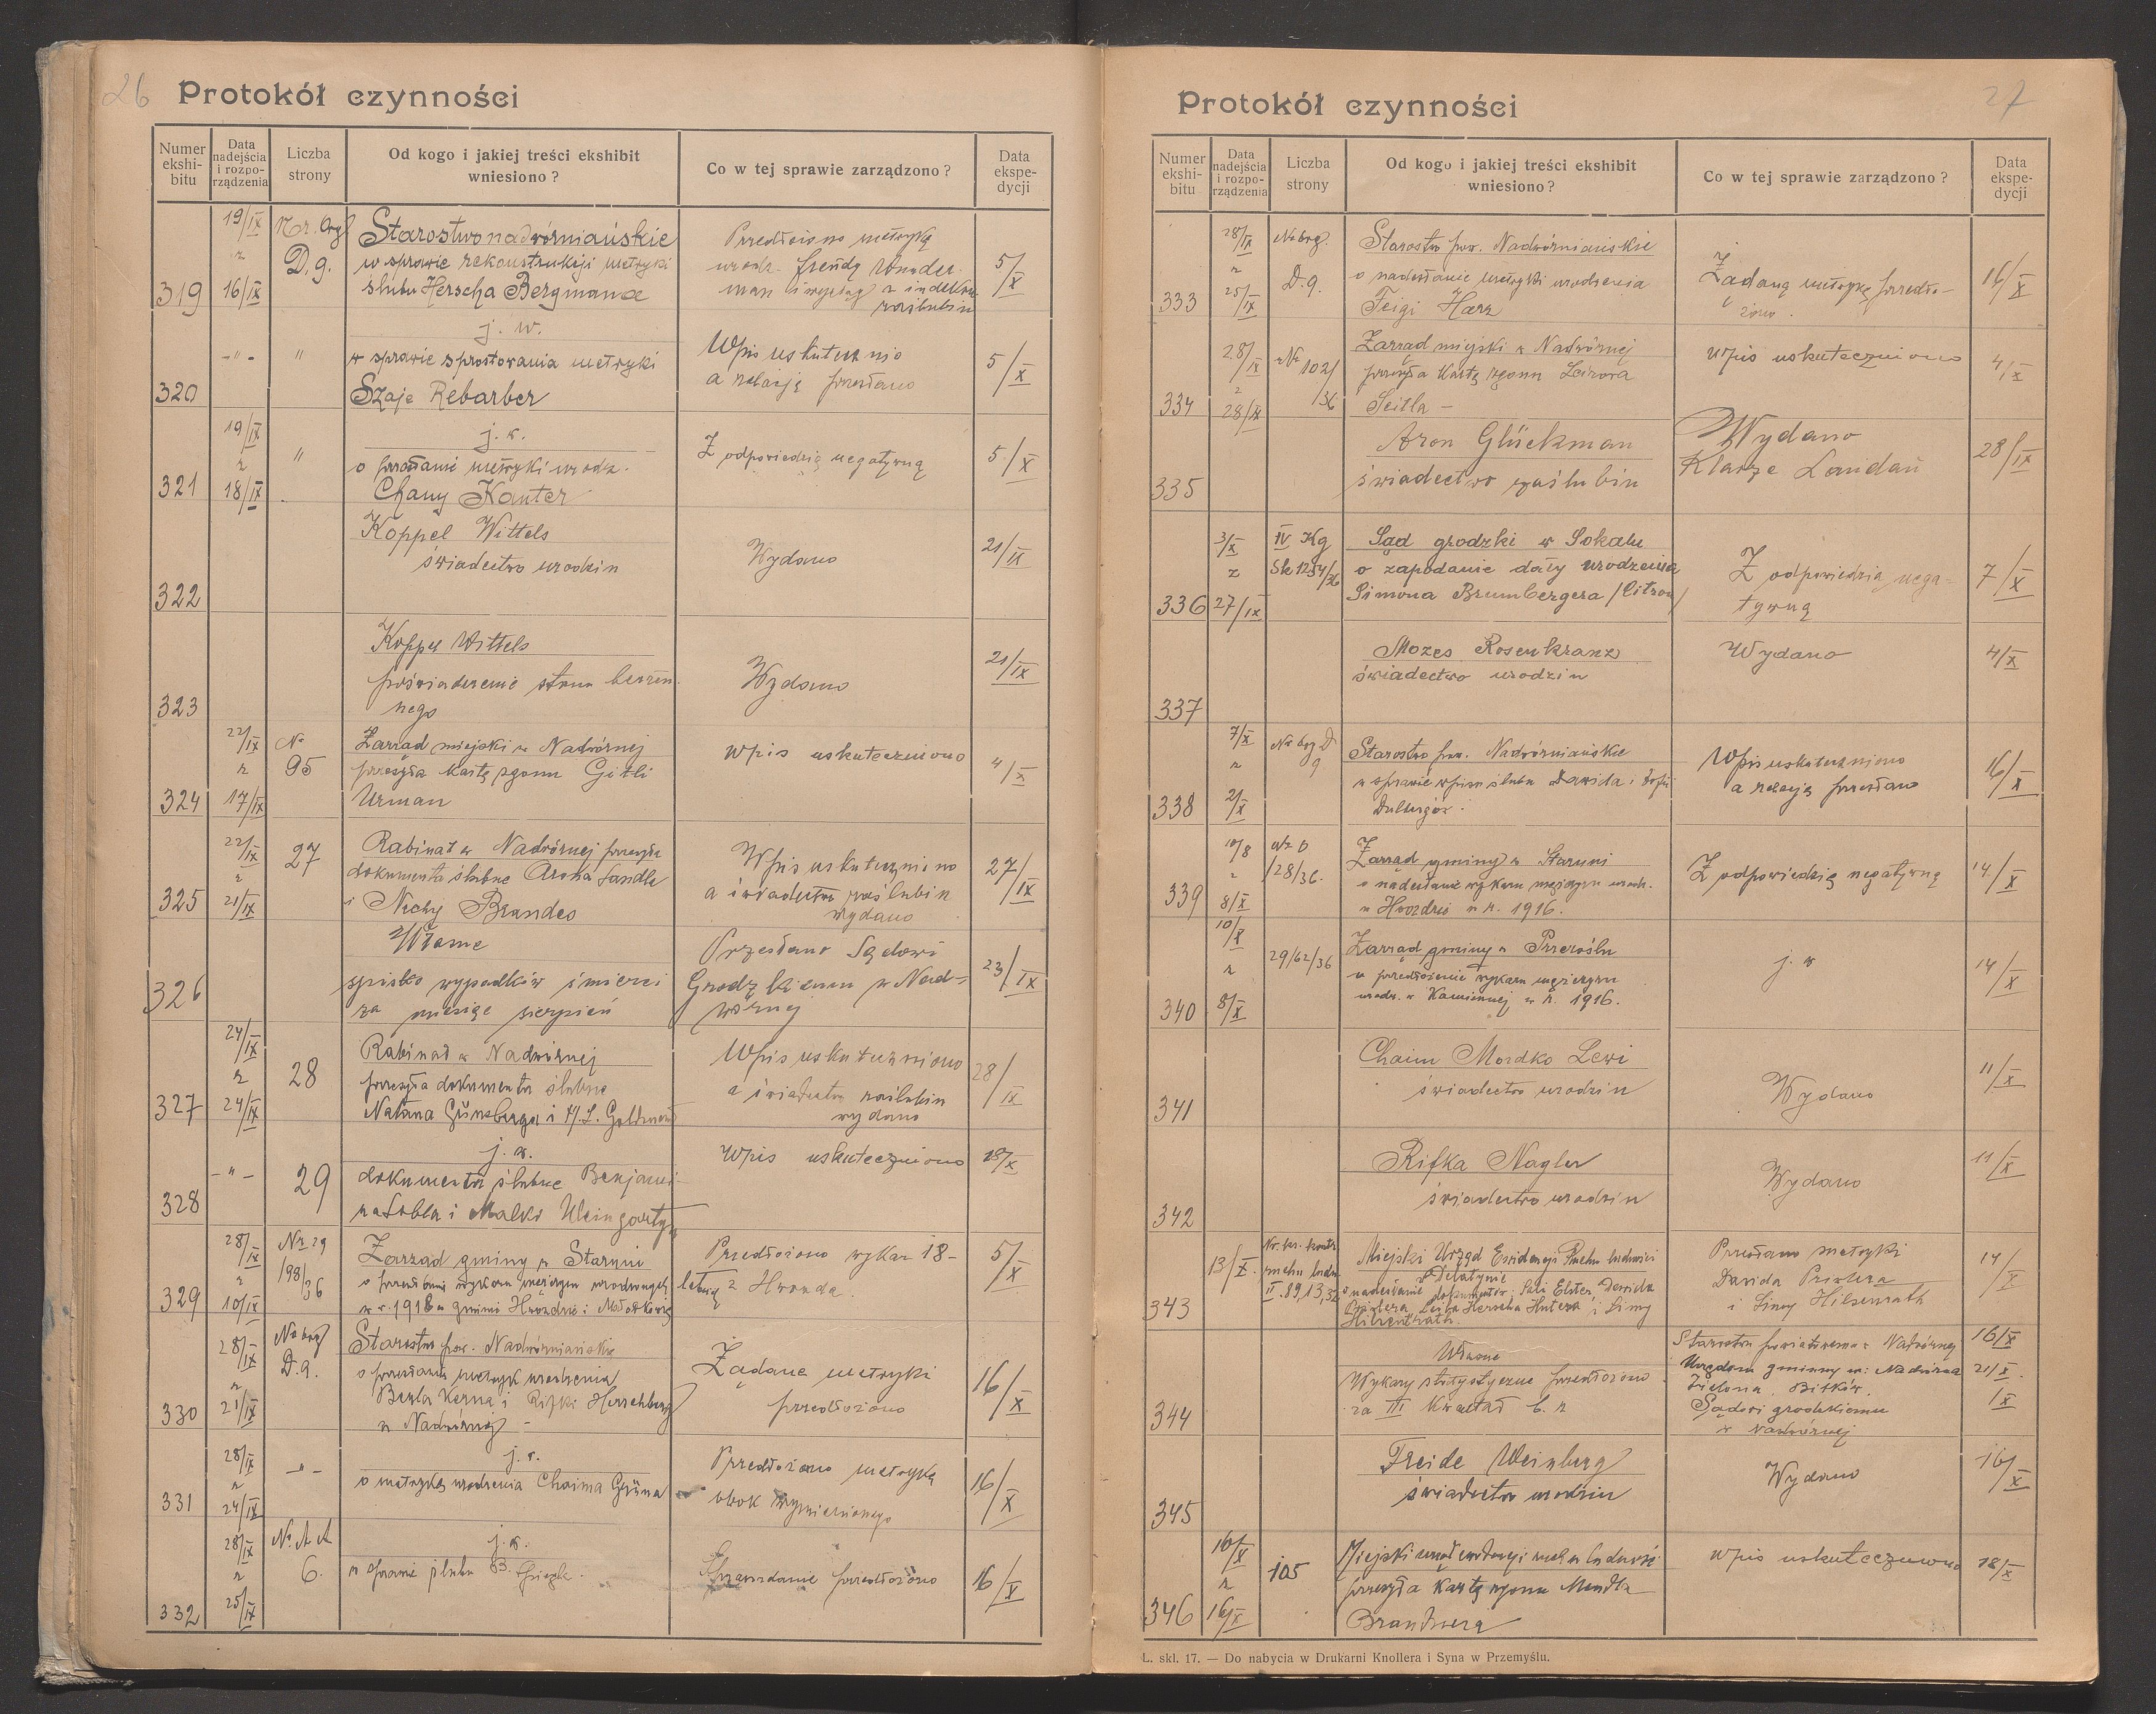 26
Protokół czynności
Numer ekshi-bitu
Data nadejścia i rozpo-rządzenia
Liczba strony
Od kogo i jakiej treści ekshibit wniesiono?
Co w tej sprawie zarządzono?
Data ekspe-dycji
319 19/IX z 16/IX D.g.
Starostwo nadwórniańskie
w sprawie rekonstrukcji metryki
ślubu Herscha Bergmana
metrykę
urodz.
man i wyciąg z indeksu
zaślubin
5/X
320 -"- "
j. w.
w sprawie sprostowania metryki
Szaje Rebarber
Wpis uskutecznio
a relację przesłano
5/X
321 19/IX z 18/IX "
j. w.
o przesłanie metryki urodz.
Chany Kanter
Z odpowiedzią negatywną
5/X
322
Koppel Wittels
świadectwo urodzin
Wydano
21/IX
323
Koppel Wittels
poświadczenie stanu
nego
Wydano
21/IX
324 22/IX z 17/IX № 95
Zarząd miejski w Nadwórnej
przesyła kartę zgonu Gitli
Urman
Wpis uskuteczniono
4/X
325 22/IX z 21/IX 27
Rabinat w Nadwórnej przesyła
dokumenta ślubne Arona Sandla
i Nechy Brandes
Wpis uskuteczniono
a świadectwo zaślubin
wydano
27/IX
326
Własne
spisko wypadków śmierci
za miesiąc sierpień
Przesłano Sądowi
Grodzkiemu w Nad-
wórnej
23/IX
327 24/IX z 24/IX 28
Rabinat w Nadwórnej
przesyła dokumenta ślubne
Natana Günsberga i
Wpis uskuteczniono
a świadectwo zaślubin
wydano
28/IX
328 -"- 29
j. w.
dokumenta ślubne Benjami-
na i Malki Weingarten
Wpis uskuteczniono
329 28/IX z 10/IX Nr 29 /98/36
Zarząd gminy w Staruni
o przesłanie wykazu mężczyzn urodzonych
w r. 1918 w gminie Hwozdzie i Mołotkowie
Przedłożono wykaz 18-
letnich z Hwozda.
5/X
330 28/IX z 21/IX D.g.
Starostwo pow. Nadwórniańskie
o przesłanie metryk urodzenia
Berla Kerna i Rifki Herschberg
w Nadwórnej -
Żądane metryki
przedłożono
16/X
331 28/IX z 24/IX -"-
j. w.
o metrykę urodzenia Chaima Grüna
Przedłożono metrykę
obok wymienionego
16/X
332 28/IX z 25/IX 6.
j. w.
w sprawie ślubu B.
Sprawozdanie przedłożono
16/X
27
Protokół czynności
Numer ekshi-bitu
Data nadejścia i rozpo-rządzenia
Liczba strony
Od kogo i jakiej treści ekshibit wniesiono?
Co w tej sprawie zarządzono?
Data ekspe-dycji
333 28/IX z 25/IX D.g.
Starostwo pow. Nadwórniańskie
o nadesłanie metryki urodzenia
Feigi Harz
Żądaną metrykę przedło-
żono.
16/X
334 28/IX z 28/IX № 102/ /36
Zarząd miejski w Nadwórnej
przesyła kartę zgonu
Seitla -
Wpis uskuteczniono
4/X
335
Aron Glückman
świadectwo zaślubin
Wydano
Klarze Landau
28/IX
336 3/X z 27/IX IV Kg Sk 1254/36
Sąd grodzki w Sokalu
o zapodanie daty urodzenia
Simona Brumbergera /Citron/
Z odpowiedzią nega-
tywną
7/X
337
Mozes Rosenkranz
świadectwo urodzin
Wydano
4/X
338 7/X z 2/X
Starostwo pow. Nadwórniańskie
w sprawie wpisu ślubu Dawida i
Wpis uskuteczniono
a relację przesłano
16/X
339 z 8/X /28/36.
Zarząd gminy w Staruni
o nadesłanie wykazu mężczyzn urodz.
w Hwozdzie w r. 1916.
Z odpowiedzią negatywną
14/X
340 10/X z 8/X 29/62/36
Zarząd gminy w Przerośli
o przedłożenie wykazu mężczyzn
urodz. w Kamiennej w r. 1916.
j. w
14/X
341
Chaim Mordko Lewi
świadectwo urodzin
Wydano
11/X
342
Rifka Nagler
świadectwo urodzin
Wydano
11/X
343 13/X II.89,13,32
Miejski Urząd Ewidencji Ruchu ludności
w Delatynie
o nadesłanie dokumentów: Sali Elster, Dawida
Leiba Herscha Hutera i Simy
Hilsenrath.
Przesłano metryki
Dawida
i Simy Hilsenrath
14/X
344
Własne
Wykazy statystyczne przedłożono
za III Kwartał b. r.
Starostwu powiatowemu w Nadwórnej
Urzędom gminnym w: Nadwórna
Zielona, Bitków,
Sądowi grodzkiemu
w Nadwórnej
16/X
21/X.
1X
345
Freide Weinberg
świadectwo urodzin
Wydano
16/X
346 16/X z 16/X 105
Miejski urząd ewidencji ruchu ludności
przesyła kartę zgonu Mendla
Brandwera
Wpis uskuteczniono
18/X
L. skł. 17. — Do nabycia w Drukarni Knollera i Syna w Przemyślu.